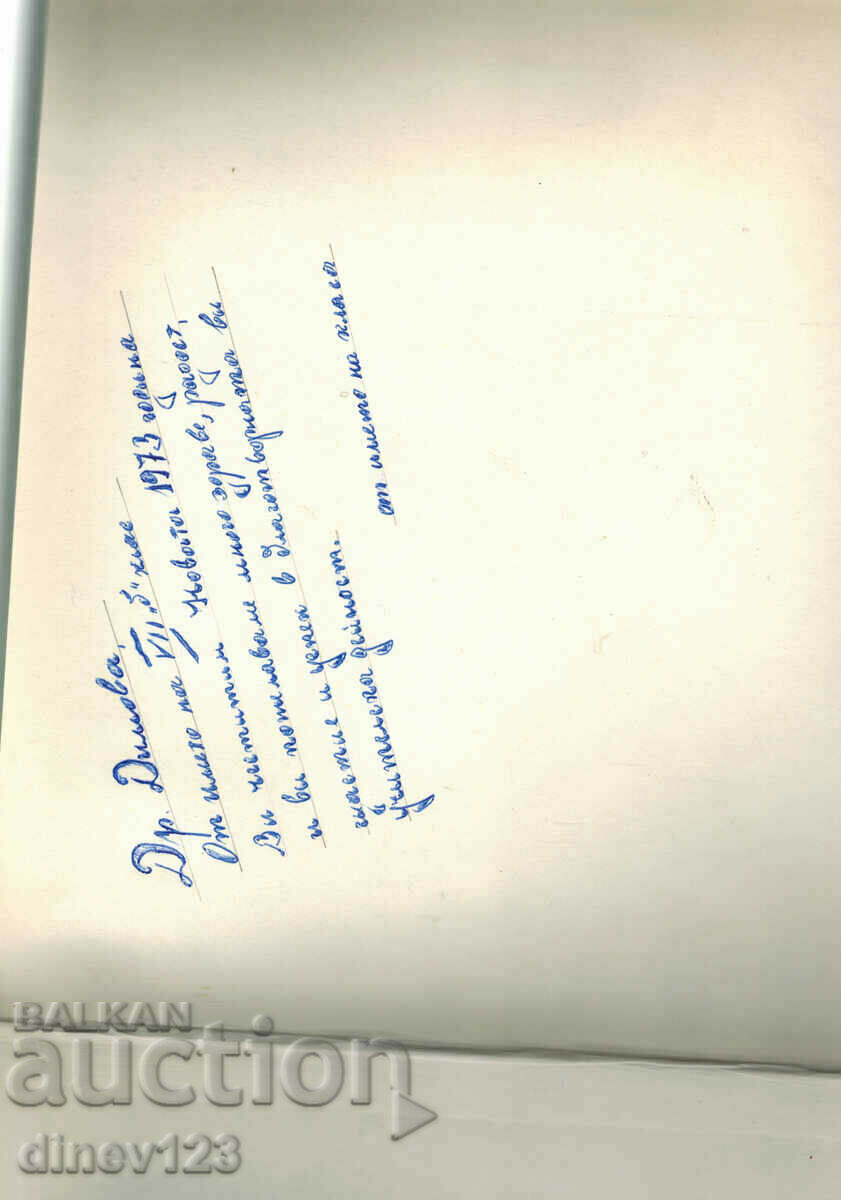 Др. Димова,
От името на VII „б" клас
Ви честитим Новата 1973 година
и ви пожелаваме много здраве, радост,
щастие и успех в благотворната ви
учителска дейност.
от името на класа
BALKAN
auction
dinev123